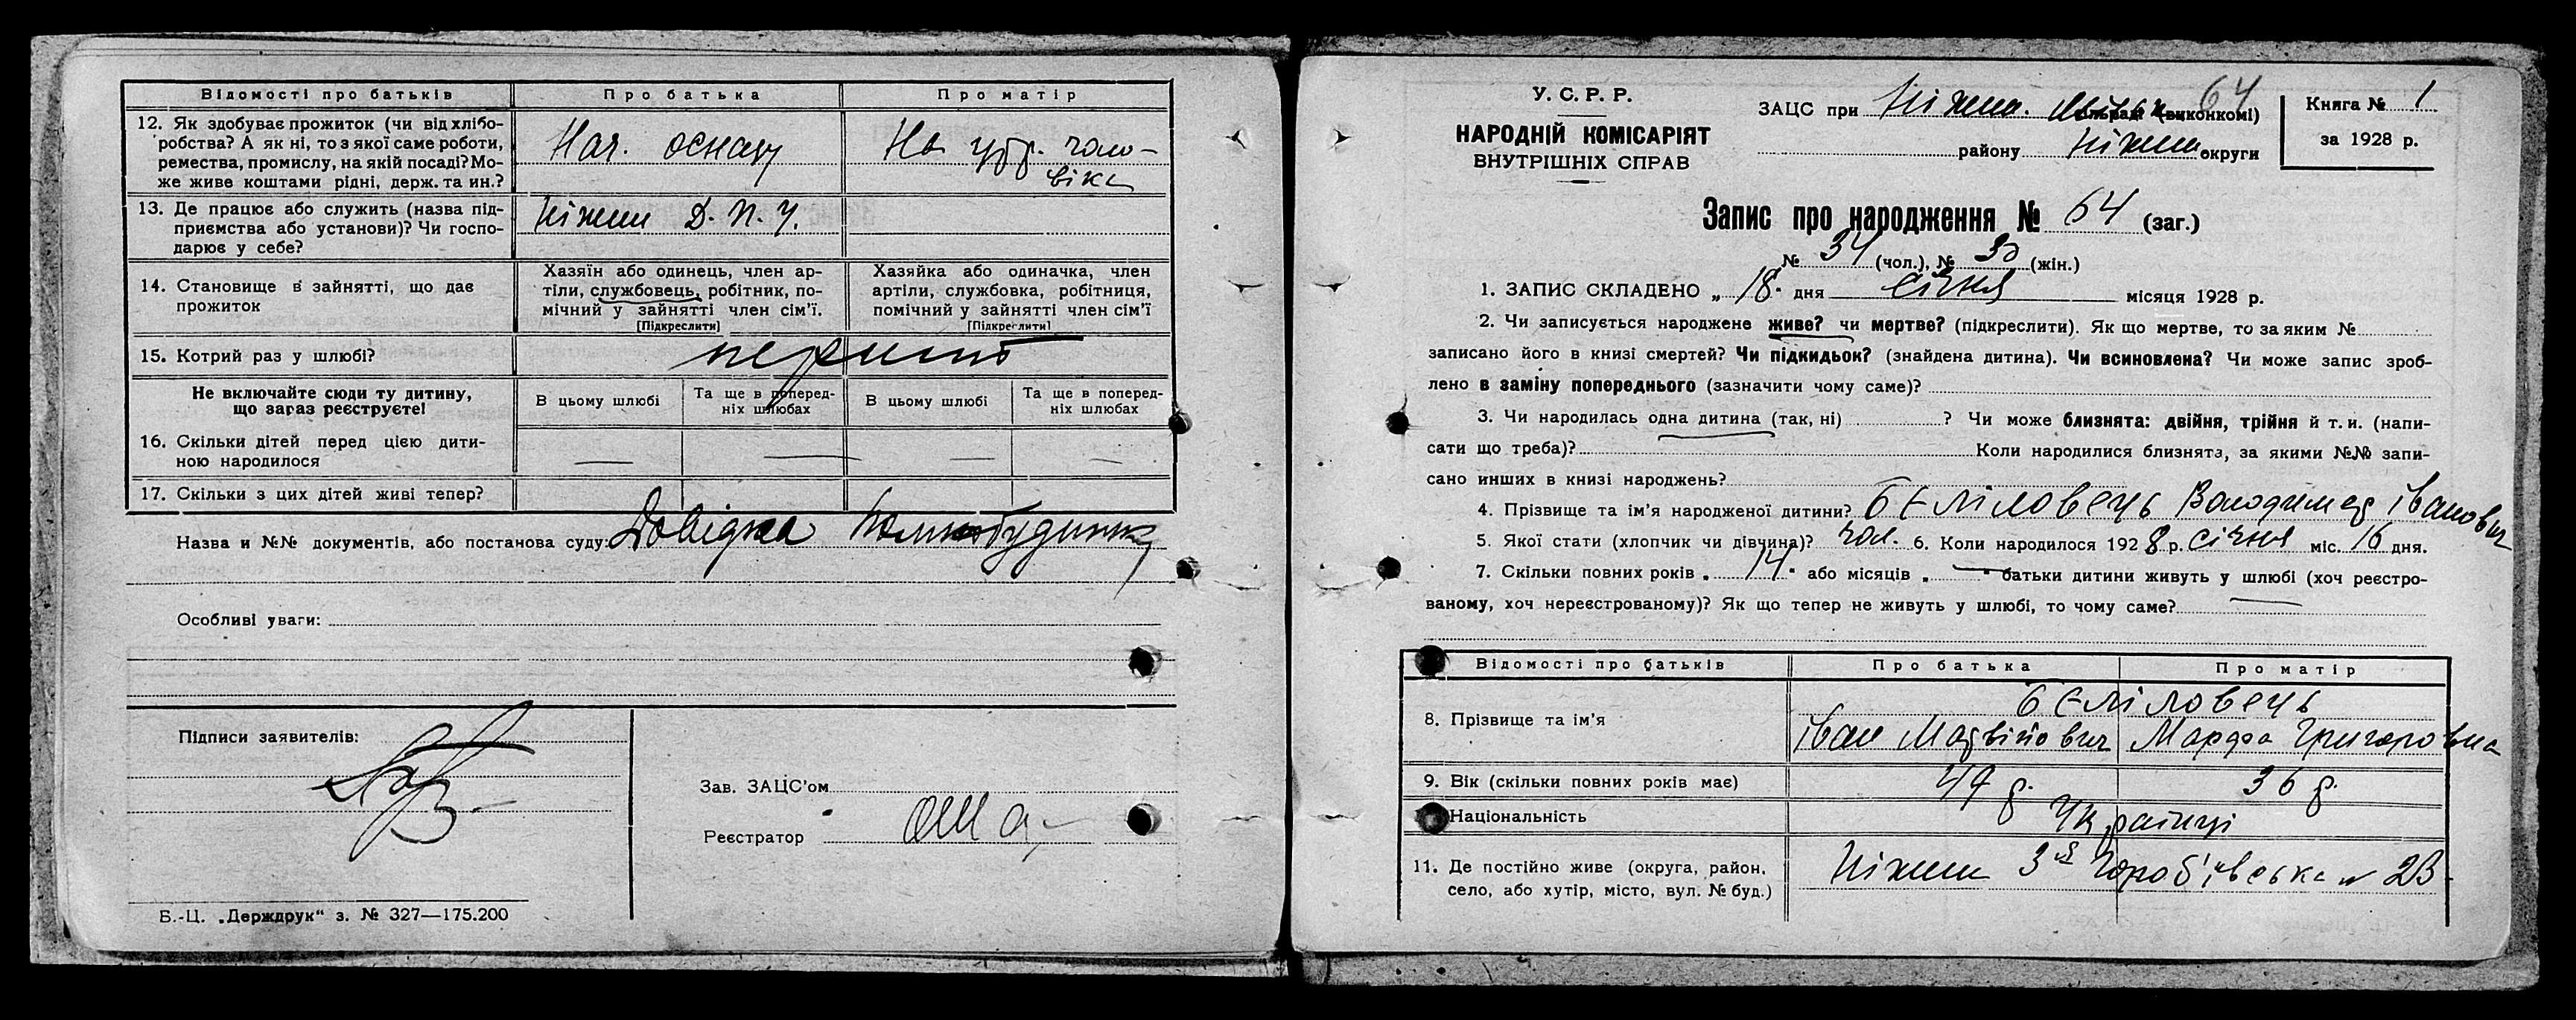 Відомості про батьків Про батька Про матір
12. Як здобуває прожиток (чи від хлібо-
робства? А як ні, то з якої саме роботи,
ремества, промислу, на якій посаді? Мо-
же живе коштами рідні, держ. та ин.?
Нач.
На утр. чоло-
віка
13. Де працює або служить (назва під-
приємства або установи)? Чи госпо-
дарює у себе?
Ніжин Д. П. У.
14. Становище в зайнятті, що дає
прожиток
Хазяїн або одинець, член ар-
тіли, службовець, робітник, по-
мічний у зайнятті член сім'ї.
[Підкреслити]
Хазяйка або одиначка, член
артіли, службовка, робітниця,
помічний у зайнятті член сім'ї
[Підкреслити]
15. Котрий раз у шлюбі?
Не включайте сюди ту дитину,
що зараз реєструєте!
В цьому шлюбі
Та ще в поперед-
ніх шлюбах
В цьому шлюбі
Та ще в поперед-
ніх шлюбах
16. Скільки дітей перед цією дити-
ною народилося — — — —
17. Скільки з цих дітей живі тепер?
Назва и №№ документів, або постанова суду: Довідка
Особливі уваги:
Підписи заявителів:
Зав. ЗАЦС'ом
Реєстратор
Б.-Ц. „Держдрук“ з. № 327—175.200
У. С. Р. Р.
НАРОДНІЙ КОМІСАРІЯТ
ВНУТРІШНІХ СПРАВ
64
ЗАЦС при Ніжин. (виконкомі)
району Ніжин округи
Книга № 1
за 1928 р.
Запис про народження № 64 (заг.)
№ 34 (чол.), № 30 (жін.)
1. ЗАПИС СКЛАДЕНО „ 18 " дня січня місяця 1928 р.
2. Чи записується народжене живе? чи мертве? (підкреслити). Як що мертве, то за яким №
записано його в книзі смертей? Чи підкидьок? (знайдена дитина). Чи всиновлена? Чи може запис зроб-
лено в заміну попереднього (зазначити чому саме)?
3. Чи народилась одна дитина (так, ні) ? Чи може близнята: двійня, трійня й т. и. (напи-
сати що треба)? Коли народилися близнята, за якими №№ запи-
сано инших в книзі народжень?
4. Прізвище та ім'я народженої дитини? Беліловець Володимир Іванович
5. Якої статі (хлопчик чи дівчина)? чол. 6. Коли народилося 1928 р. січня міс. 16 дня.
7. Скільки повних років „ 14 " або місяців „ — " батьки дитини живуть у шлюбі (хоч реєстро-
ваному, хоч нереєстрованому)? Як що тепер не живуть у шлюбі, то чому саме? —
Відомості про батьків Про батька Про матір
8. Прізвище та ім'я
Беліловець
Іван Матвійович Марфа Григоровна
9. Вік (скільки повних років має) 49 р. 36 р.
Національність Українці
11. Де постійно живе (округа, район,
село, або хутір, місто, вул. № буд.)
Ніжин 3я № 23